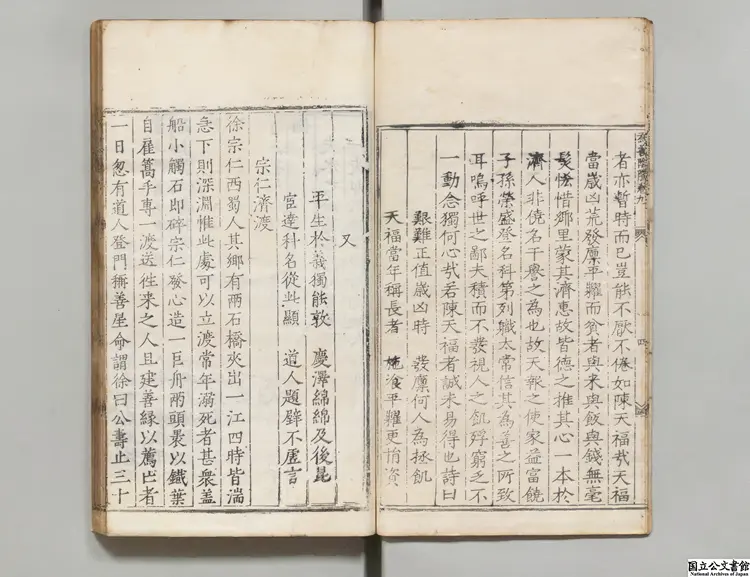 者亦暫時而已豈能不厭不倦如陳天福哉天福
當歲凶荒發廩平糶而貧者與米與飯與錢無毫
髮恡惜鄉里蒙其濟惠故皆德之推其心一本於
濟人非僥名干譽之為也故天報之使家益富饒
子孫榮盛登名科第列職太常信其為善之所致
耳嗚呼世之鄙夫積而不發視人之飢殍窮乏不
一動念獨何心哉若陳天福者誠未易得也詩曰
艱難正值歲凶時 發廩何人為拯飢
天福當年稱長者 施湌平糶更捐資
又
平生於義獨能敦 慶澤綿綿及後昆
宦達科名從此顯 道人題壁不虛言
宗仁濟渡
徐宗仁西蜀人其鄉有兩石橋夾出一江四時皆湍
急下則深淵惟此處可以立渡常年溺死者甚衆蓋
船小觸石即碎宗仁發心造一巨舟兩頭裹以鐵葉
自雇篙手專一渡送徃来之人且建善緣以薦亡者
一日忽有道人登門稱善星命謂徐曰公壽止三十
国立公文書館
National Archives of Japan